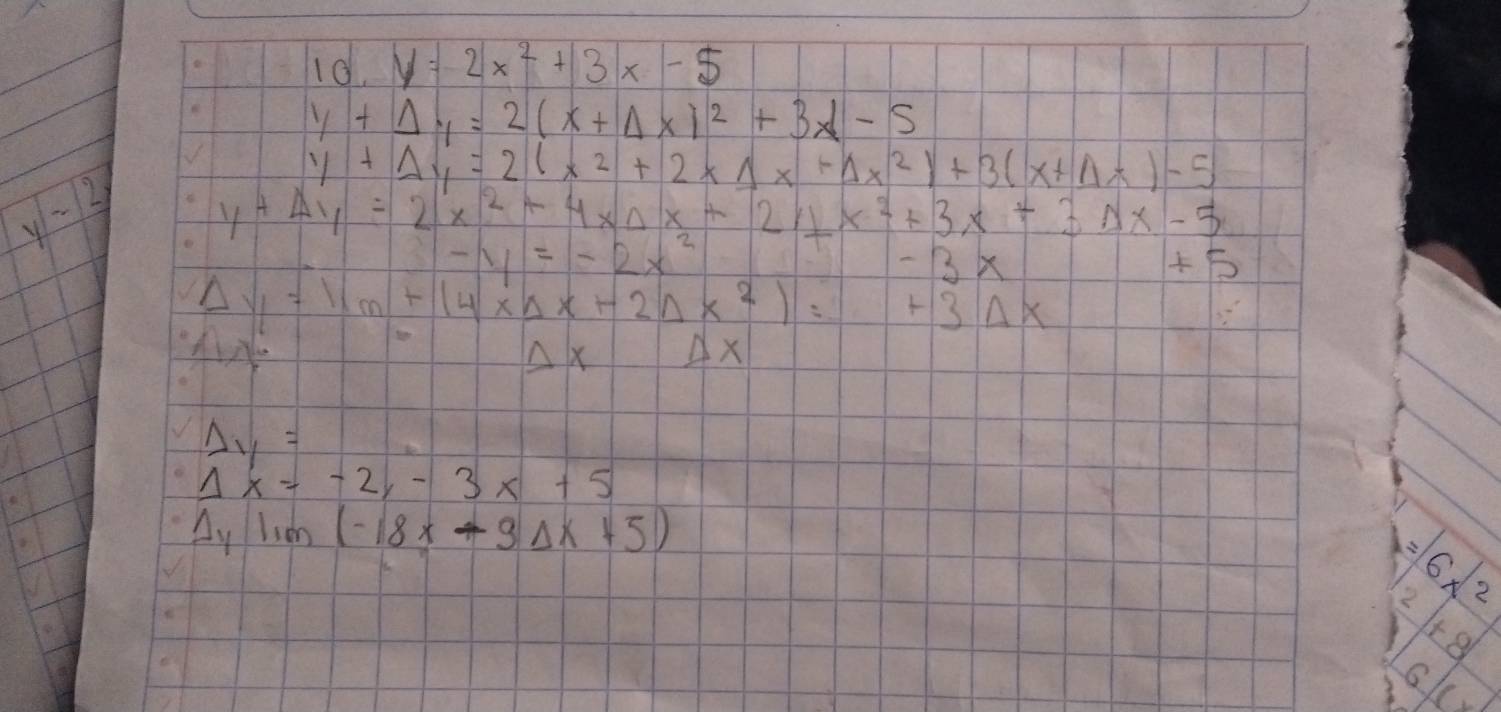 10. y = 2x² + 3x - 5
y + Δy = 2(x + Δx)² + 3x - 5
y + Δy = 2(x² + 2xΔx + Δx²) + 3(x + Δx) - 5
y + Δy = 2x² + 4xΔx + 2Δx² + 3x + 3Δx - 5
-y = -2x² - 3x + 5
Δy = lim + (4xΔx + 2Δx²) = + 3Δx
Δx Δx Δx
Δy =
Δx = -2, - 3x + 5
Δy lim (-18x - 9Δx + 5)
y - 2
= 6x 2
2 + 8
6 (x